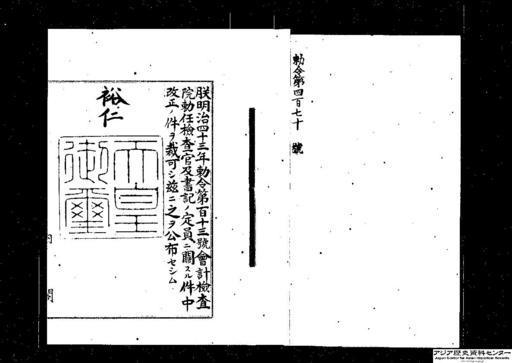 勅令第四百七十號
朕明治四十三年勅令第百十三號會計檢査
院勅任檢査官及書記ノ定員ニ關スル件中
改正ノ件ヲ裁可シ茲ニ之ヲ公布セシム
裕仁
天皇
御璽
内閣
アジア歴史資料センター
Japan Center for Asian Historical Records